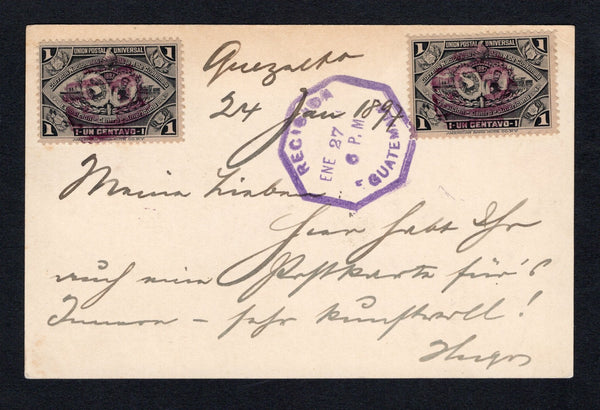 UNION POSTAL UNIVERSAL
1 1
1-UN CENTAVO-1
1 1
UNION POSTAL UNIVERSAL
1 1
1-UN CENTAVO-1
1 1
Quezalto
24 Jan 1897
ENE 27
6 P.M
GUATEMALA
Meine Lieben
Hier habt Ihr
auch eine Postkarte für's
Innere – sehr kunstvoll!
Hugo